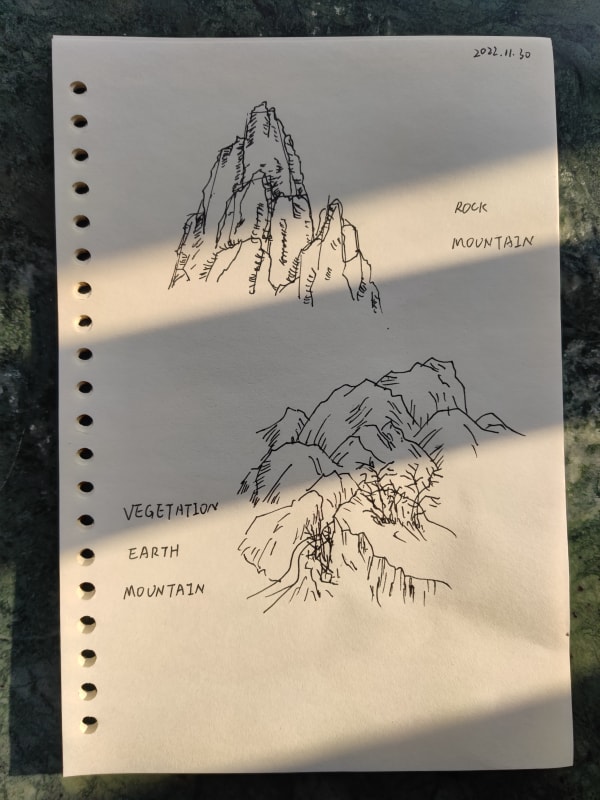 2022.11.30
ROCK
MOUNTAIN
VEGETATION
EARTH
MOUNTAIN